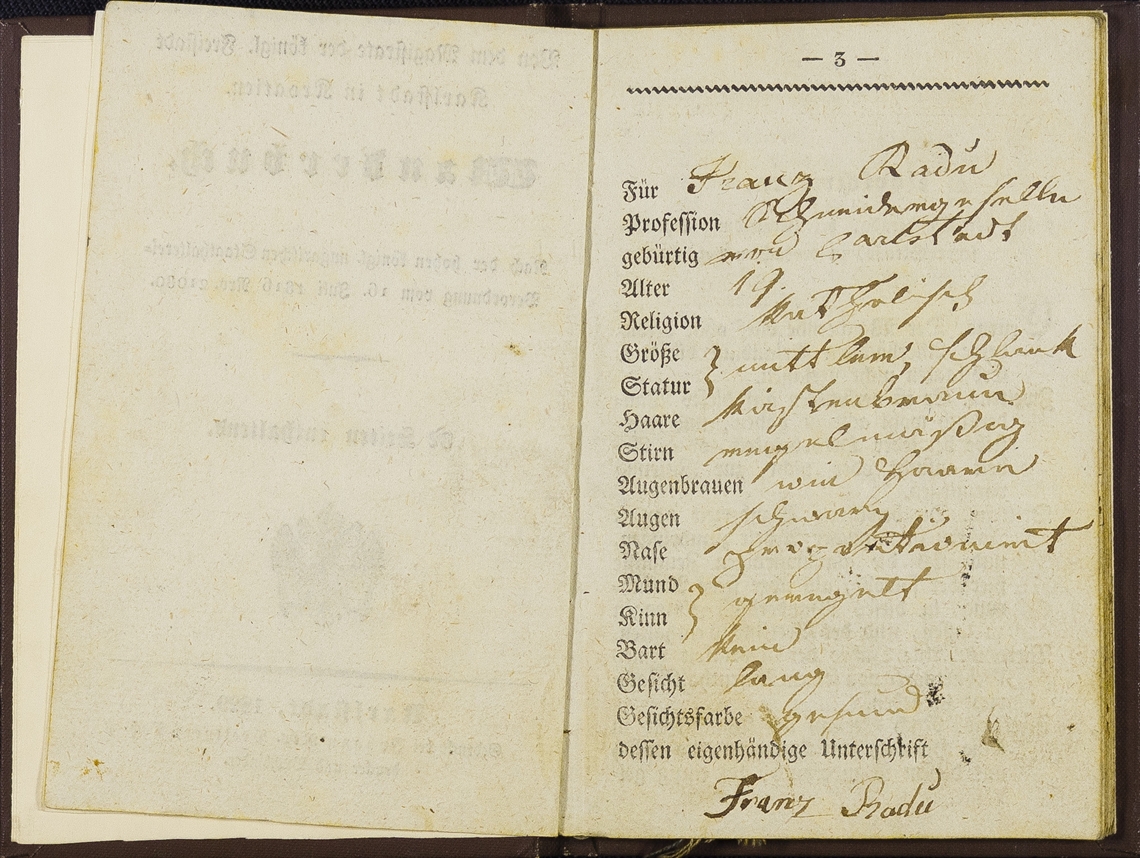 — 3 —
Für Franz Radu
Profession Schneidergeselle
gebürtig von Carlstadt
Alter 19.
Religion Katholisch
Größe } mittlern, schlank
Statur
Haare Kastenbraun
Stirn regelmäßig
Augenbrauen wie Haare
Augen schwarz
Nase proportionirt
Mund } geregelt
Kinn
Bart Kein
Gesicht lang
Gesichtsfarbe gesund
dessen eigenhändige Unterschrift
Franz Radu
Von dem Magistrate der königl. Freistadt
Karlstadt in Kroatien.
Wanderbuch.
Nach der hohen königl. ungarischen Statthalterei-
Verordnung vom 16. Juli 1816 Nro. 21080.
Seiten enthaltend.